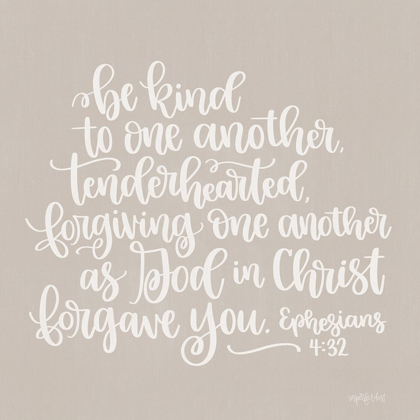 be kind
to one another,
tenderhearted,
forgiving one another
as God in Christ
forgave you. Ephesians
4:32